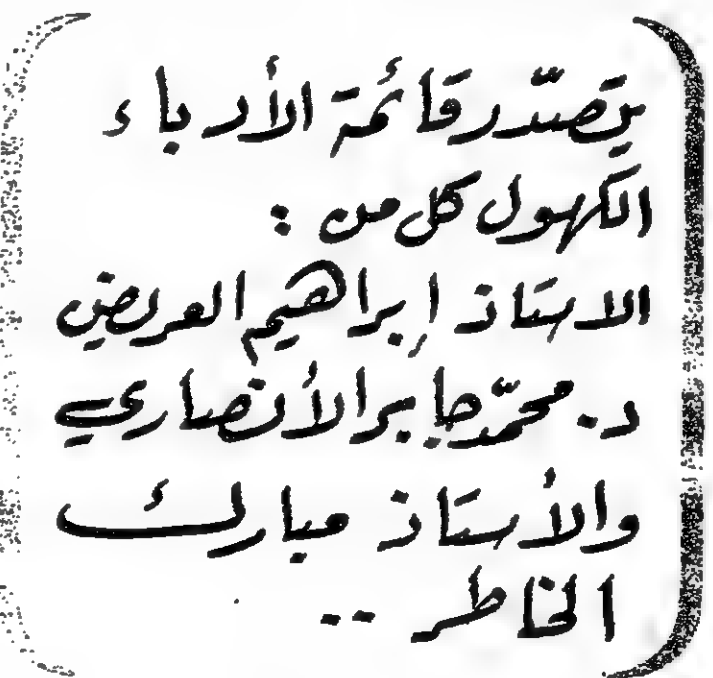 يتصدّر قائمة الأدباء
الكهول كل من :
الاستاذ إبراهيم العريض
د. محمّد جابر الأنصاري
والأستاذ مبارك
الخاطر ..